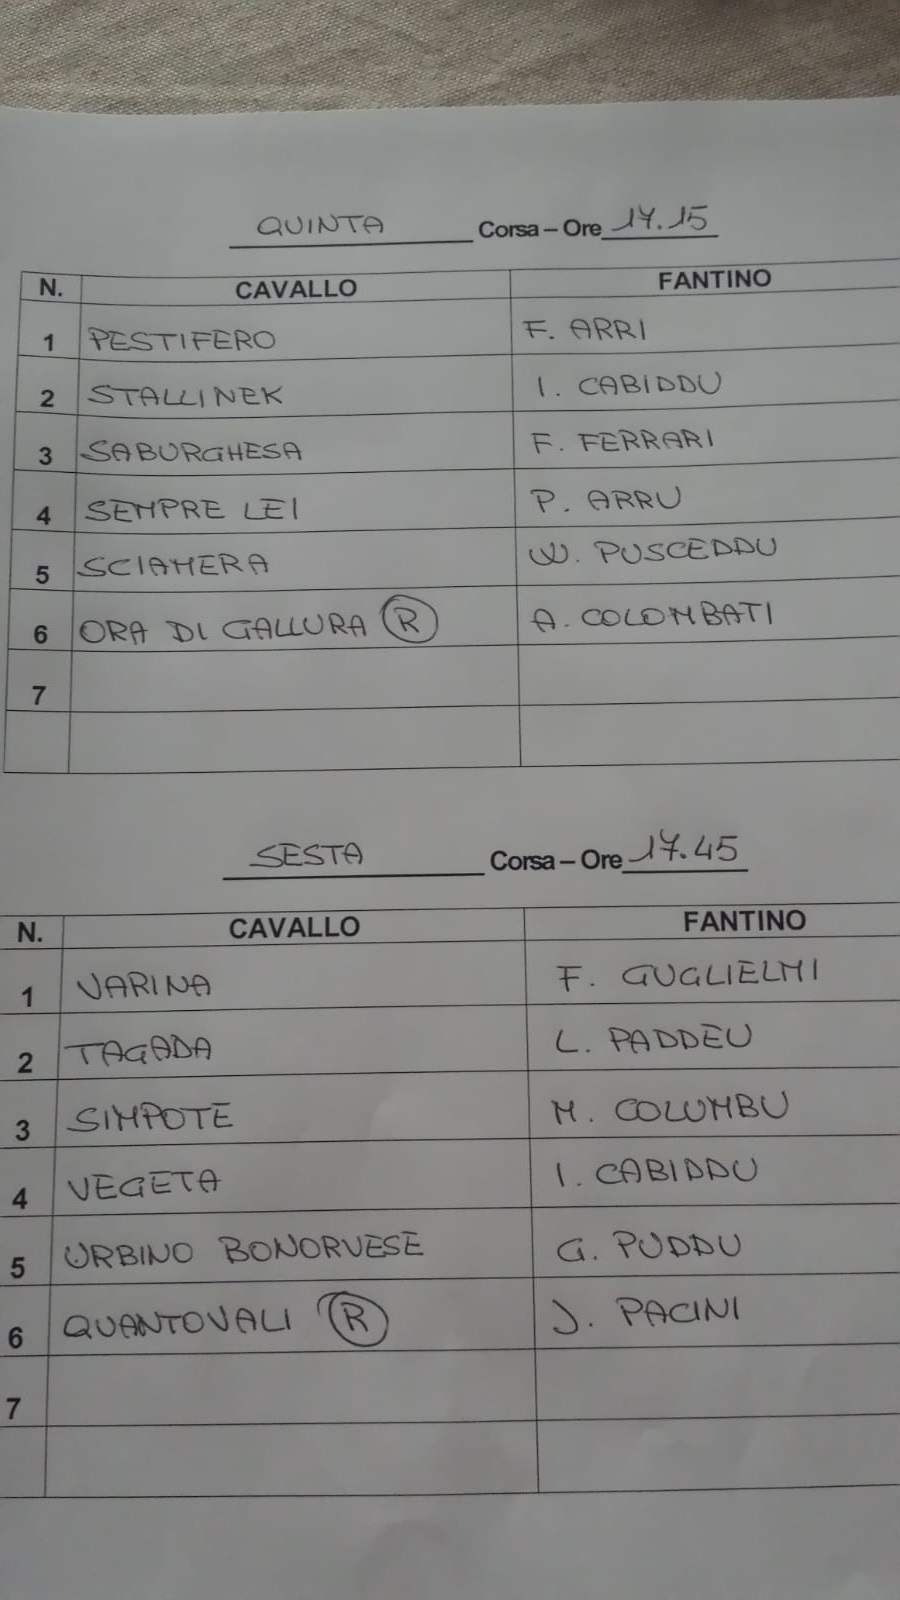 QUINTA Corsa – Ore 17.15
N. CAVALLO FANTINO
1 PESTIFERO F. ARRI
2 STALLINEK I. CABIDDU
3 SABURGHESA F. FERRARI
4 SEMPRE LEI P. ARRU
5 SCIAMERA W. PUSCEDDU
6 ORA DI GALLURA R A. COLOMBATI
7
SESTA Corsa – Ore 17.45
N. CAVALLO FANTINO
1 VARINA F. GUGLIELMI
2 TAGADA L. PADDEU
3 SIMPOTE M. COLUMBU
4 VEGETA I. CABIDDU
5 URBINO BONORVESE G. PUDDU
6 QUANTOVALI R J. PACINI
7